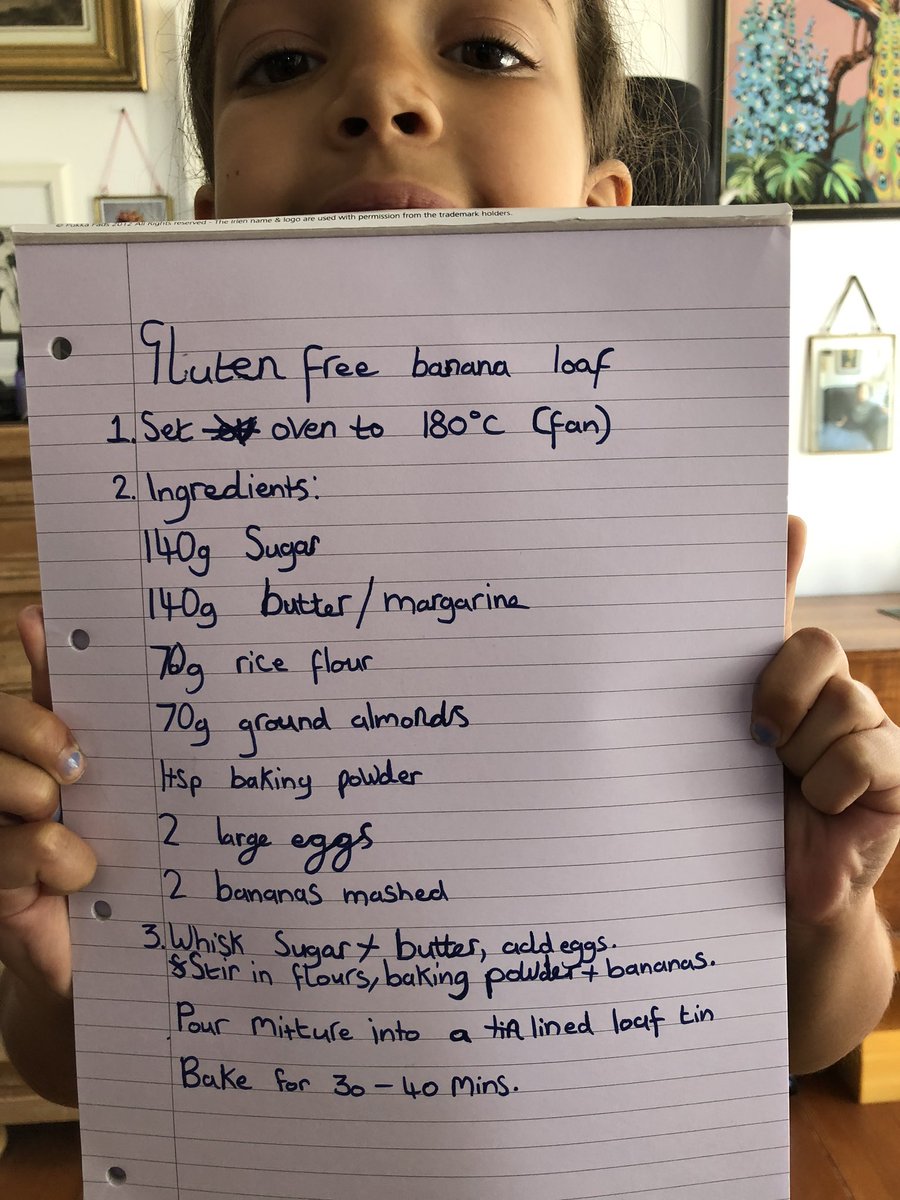 © Pukka Pads 2012 All Rights reserved - The Irlen name & logo are used with permission from the trademark holders.
Gluten free banana loaf
1. Set oven to 180°C (fan)
2. Ingredients:
140g Sugar
140g butter/margarine
70g rice flour
70g ground almonds
1tsp baking powder
2 large eggs
2 bananas mashed
3. Whisk Sugar + butter, add eggs.
& Stir in flours, baking powder + bananas.
Pour mixture into a lined loaf tin
Bake for 30 - 40 Mins.